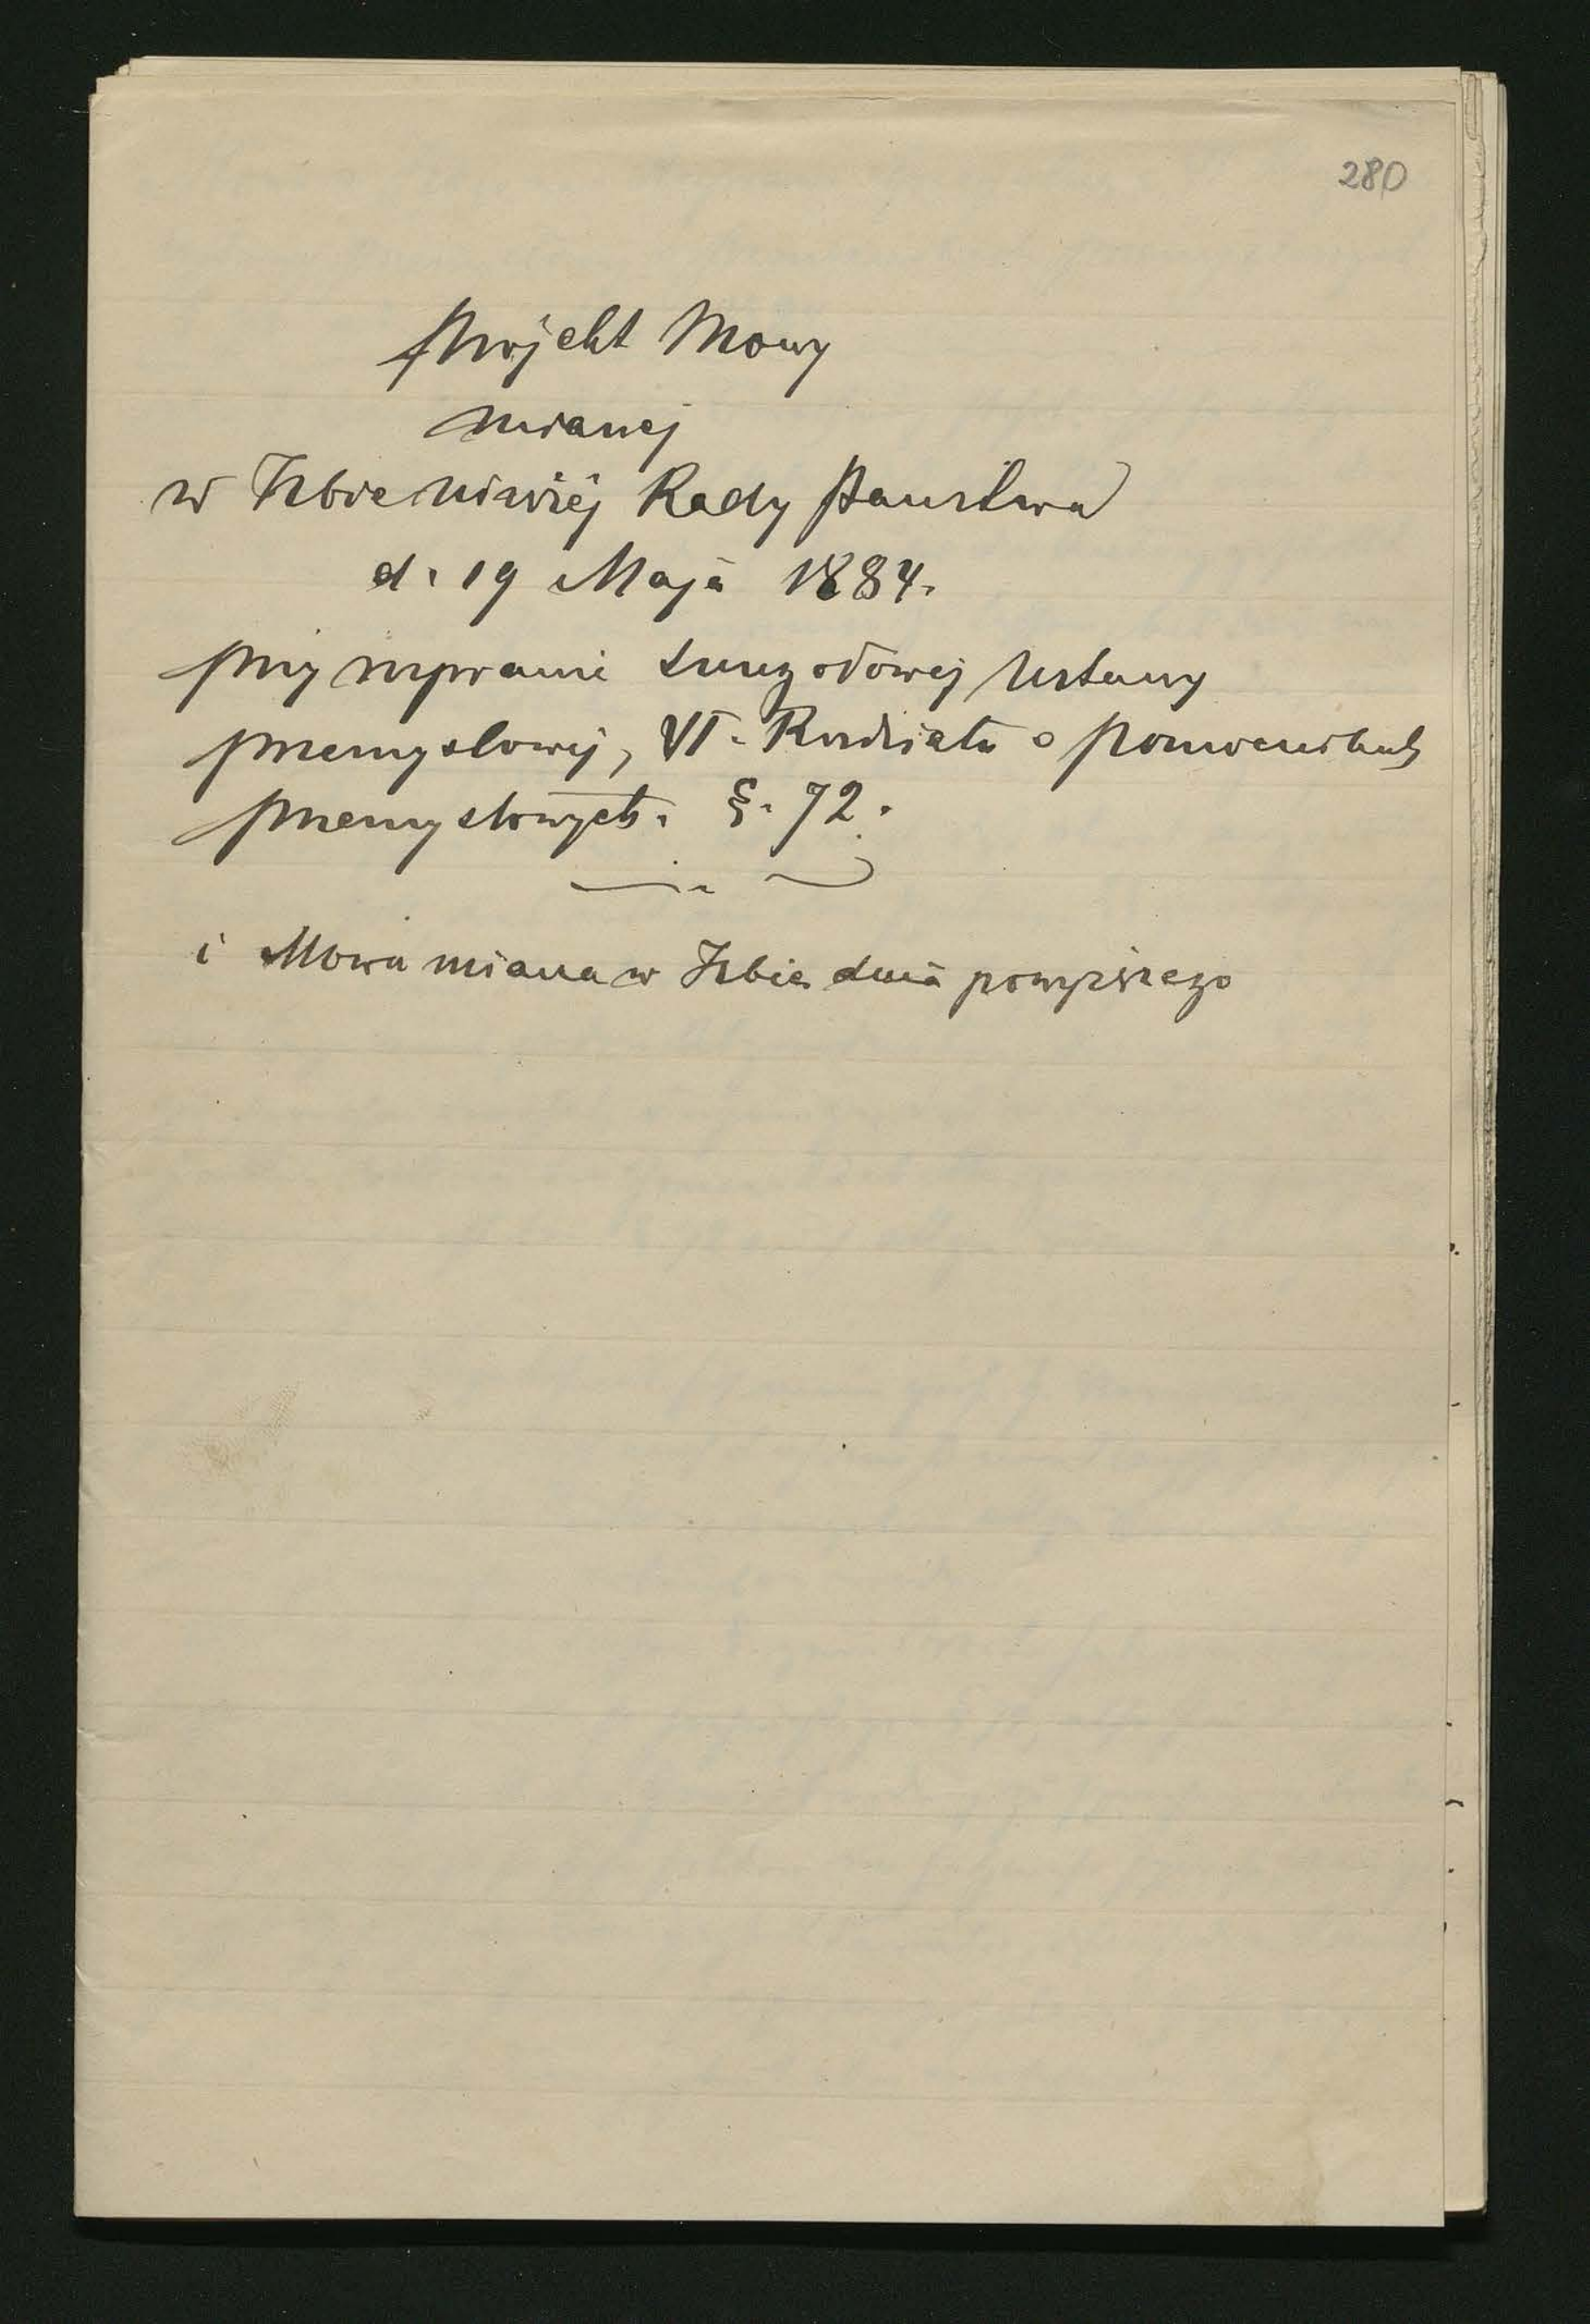 280
Projekt Mowy
mianej
w Izbie niższéj Rady Państwa
d. 19 Maja 1884.
przy rozprawie szczegółowej Ustawy
przemysłowej, VI. Rozdziału o pomocnikach
przemysłowych. §. 72.
i Mowa miana w Izbie dnia powyższego